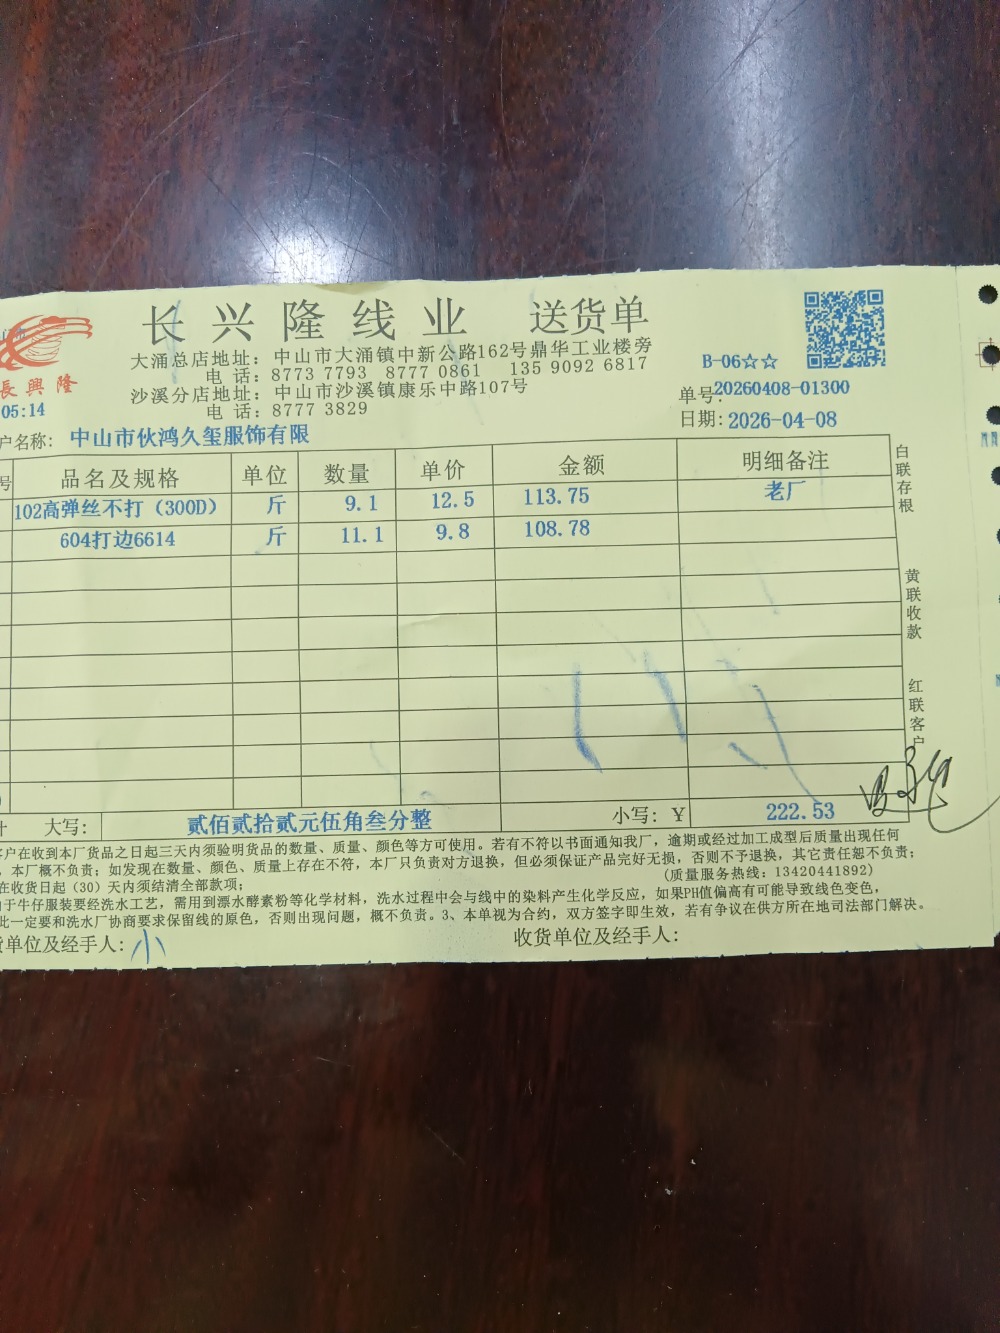 长兴隆线业 送货单
大涌总店地址：中山市大涌镇中新公路162号鼎华工业楼旁
电 话：8773 7793 8777 0861 135 9092 6817
沙溪分店地址：中山市沙溪镇康乐中路107号
电 话：8777 3829
長興隆
05:14
B-06☆☆
单号:20260408-01300
日期:2026-04-08
户名称: 中山市伙鸿久玺服饰有限
号 品名及规格 单位 数量 单价 金额 明细备注
102高弹丝不打（300D） 斤 9.1 12.5 113.75 老厂
604打边6614 斤 11.1 9.8 108.78
白联存根
黄联收款
红联客户
计 大写: 贰佰贰拾贰元伍角叁分整 小写: ¥ 222.53
客户在收到本厂货品之日起三天内须验明货品的数量、质量、颜色等方可使用。若有不符以书面通知我厂，逾期或经过加工成型后质量出现任何
，本厂概不负责；如发现在数量、颜色、质量上存在不符，本厂只负责对方退换，但必须保证产品完好无损，否则不予退换，其它责任恕不负责；
在收货日起（30）天内须结清全部款项； (质量服务热线：13420441892)
于牛仔服装要经洗水工艺，需用到漂水酵素粉等化学材料，洗水过程中会与线中的染料产生化学反应，如果PH值偏高有可能导致线色变色，
此一定要和洗水厂协商要求保留线的原色，否则出现问题，概不负责。3、本单视为合约，双方签字即生效，若有争议在供方所在地司法部门解决。
货单位及经手人: 小 收货单位及经手人: